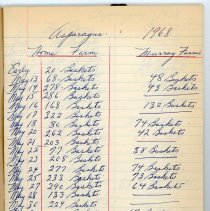 Asparagus 1968
Home Farm Murray Farm
Early 20 Baskets
May 13 Baskets 48 Baskets
May 14 278 Baskets 43 Baskets
May 15 286 Baskets
May 16 168 Baskets 132 Baskets
May 17 322 Baskets
May 18 80 Baskets 74 Baskets
May 20 262 Baskets 42 Baskets
May 21 203 Baskets
May 22 Baskets 58 Baskets
May 23 208 Baskets
May 24 277 Baskets 74 Baskets
May 25 133 Baskets 73 Baskets
May 27 290 Baskets 64 Baskets
May 28 133 Baskets
May 30 224 Baskets